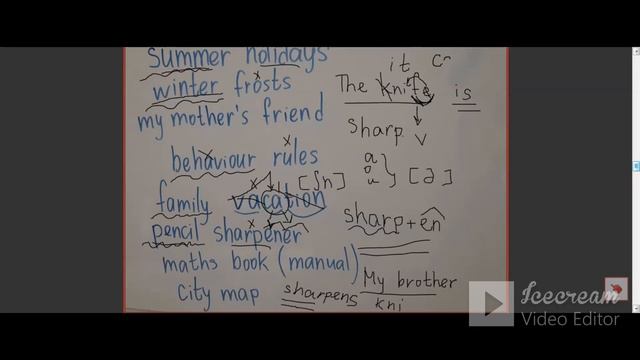 summer holidays
winter frosts
my mother's friend
behaviour rules
family vacation
pencil sharpener
maths book (manual)
city map
it
The knife is
sharp v
a
o
u
[ə]
[ʃn]
sharp + en
sharpens
My brother
kni
Icecream
Video Editor